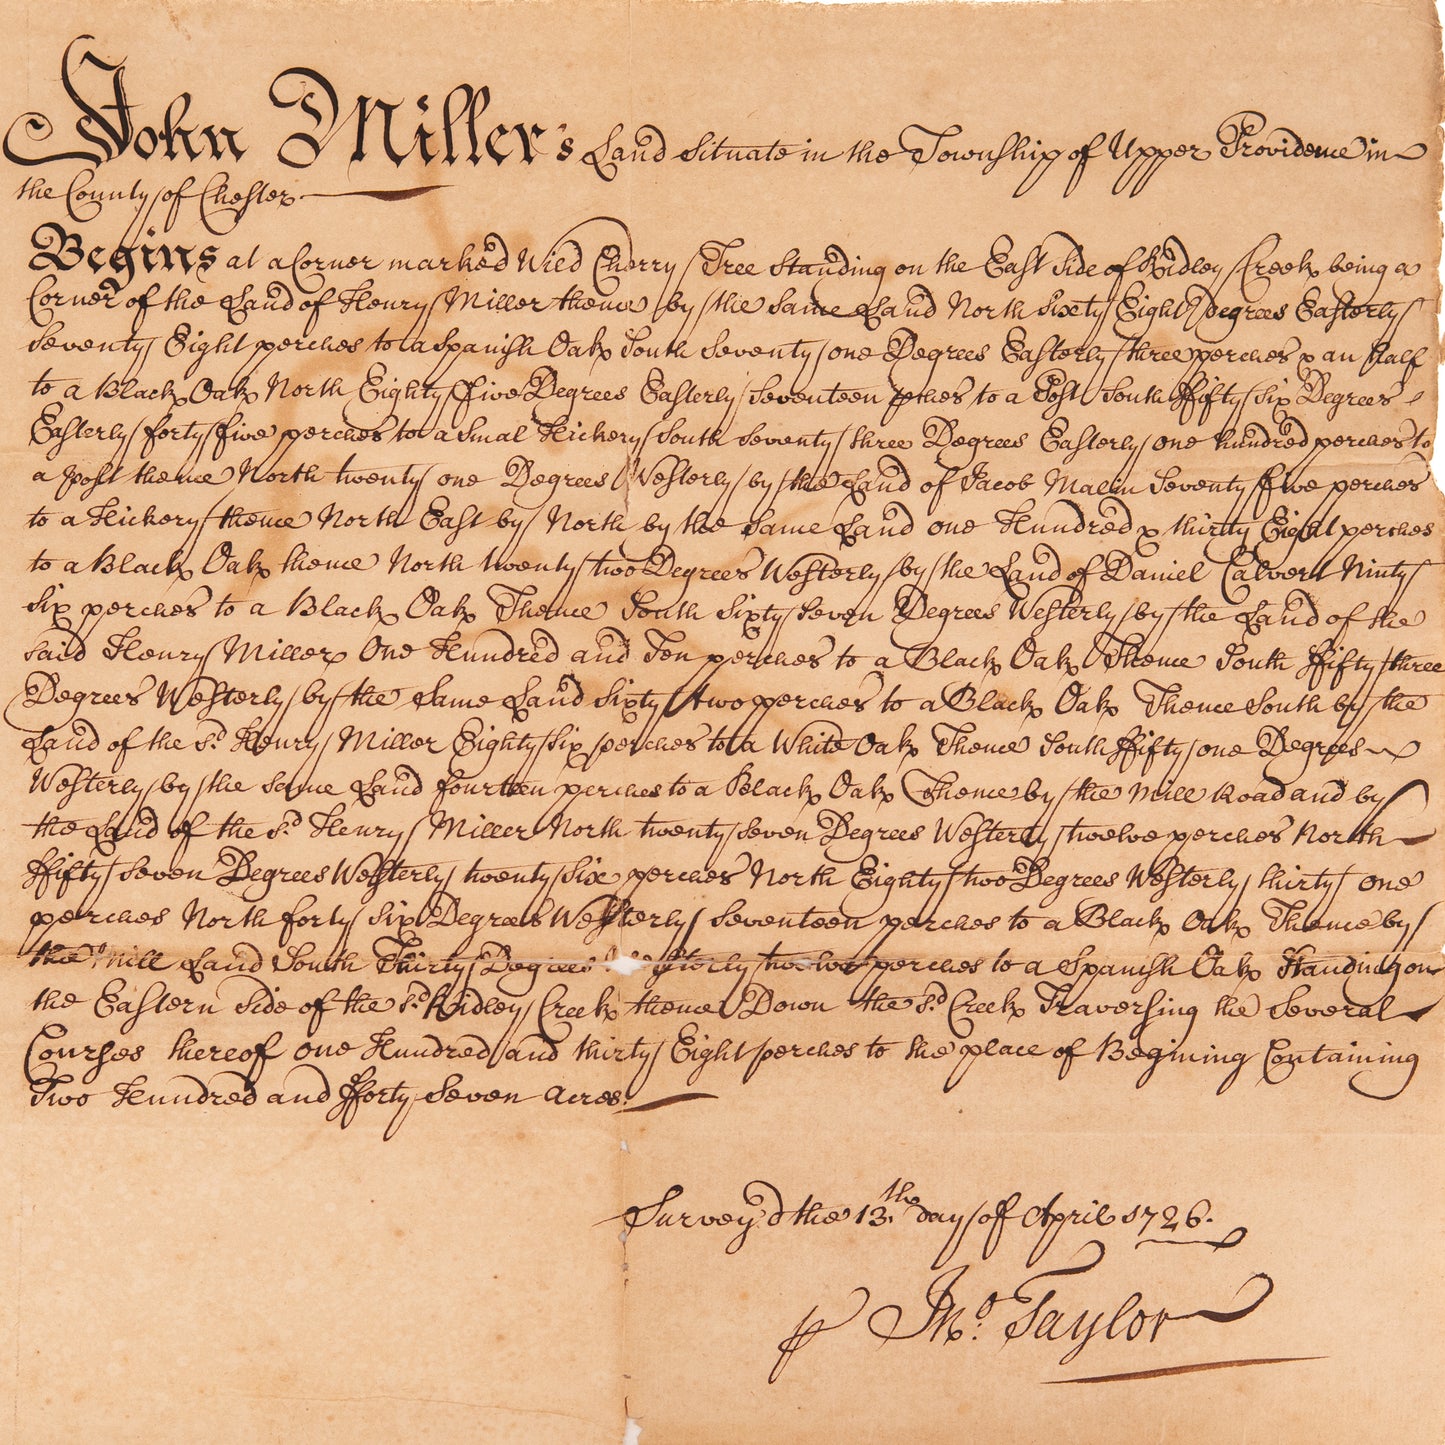 John Miller's Land Situate in the Township of Upper Providence in
the County of Chester
Begins at a Corner marked Wild Cherry Tree Standing on the East Side of Ridley Creek being a
Corner of the Land of Henry Miller thence by the Same Land North Sixty Eight Degrees Easterly
Seventy Eight perches to a Spanish Oak South Seventy one Degrees Easterly three perches & an half
to a Black Oak North Eighty ffive Degrees Easterly Seventeen pches to a Post South ffifty Six Degrees
Easterly forty five perches to a Smal Hickery South Seventy three Degrees Easterly one hundred perches to
a post thence North twenty one Degrees Westerly by the Land of Jacob Malin Seventy five perches
to a Hickery thence North East by North by the Same Land one Hundred & thirty Eight perches
to a Black Oak thence North twenty two Degrees Westerly by the Land of Daniel Calvert Ninty
Six perches to a Black Oak Thence South Sixty Seven Degrees Westerly by the Land of the
Said Henry Miller One Hundred and Ten perches to a Black Oak Thence South ffifty three
Degrees Westerly by the Same Land Sixty two perches to a Black Oak Thence South by the
Land of the Sd Henry Miller Eighty Six perches to a White Oak Thence South ffifty one Degrees
Westerly by the Same Land fourteen perches to a Black Oak Thence by the Mill Road and by
the Land of the Sd Henry Miller North twenty Seven Degrees Westerly twelve perches North
ffifty Seven Degrees Westerly twenty Six perches North Eighty two Degrees Westerly thirty one
perches North forty Six Degrees Westerly Seventeen perches to a Black Oak Thence by
the Mill Land South Thirty Degrees Westerly twelve perches to a Spanish Oak Standing on
the Eastern Side of the Sd Ridley Creek thence Down the Sd Creek Traversing the Several
Courses thereof one Hundred and thirty Eight perches to the place of Begining Containing
Two Hundred and fforty Seven Acres.
Survey'd the 13th day of April 1726.
p Jno. Taylor